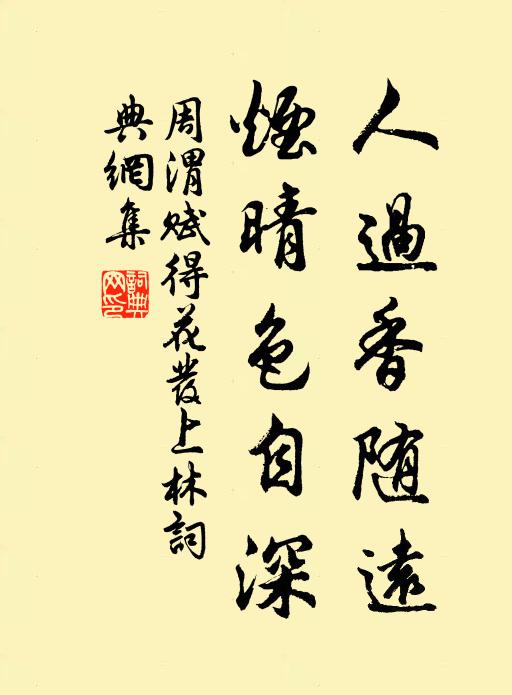 人過香随遠
煙晴色自深
周渭賦得花發上林詞
典網集
詞典
网印